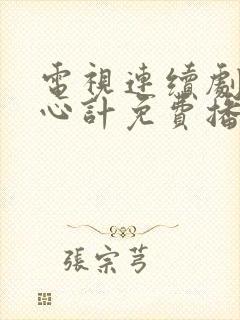 電視連續劇
心計免費播
張宗芎